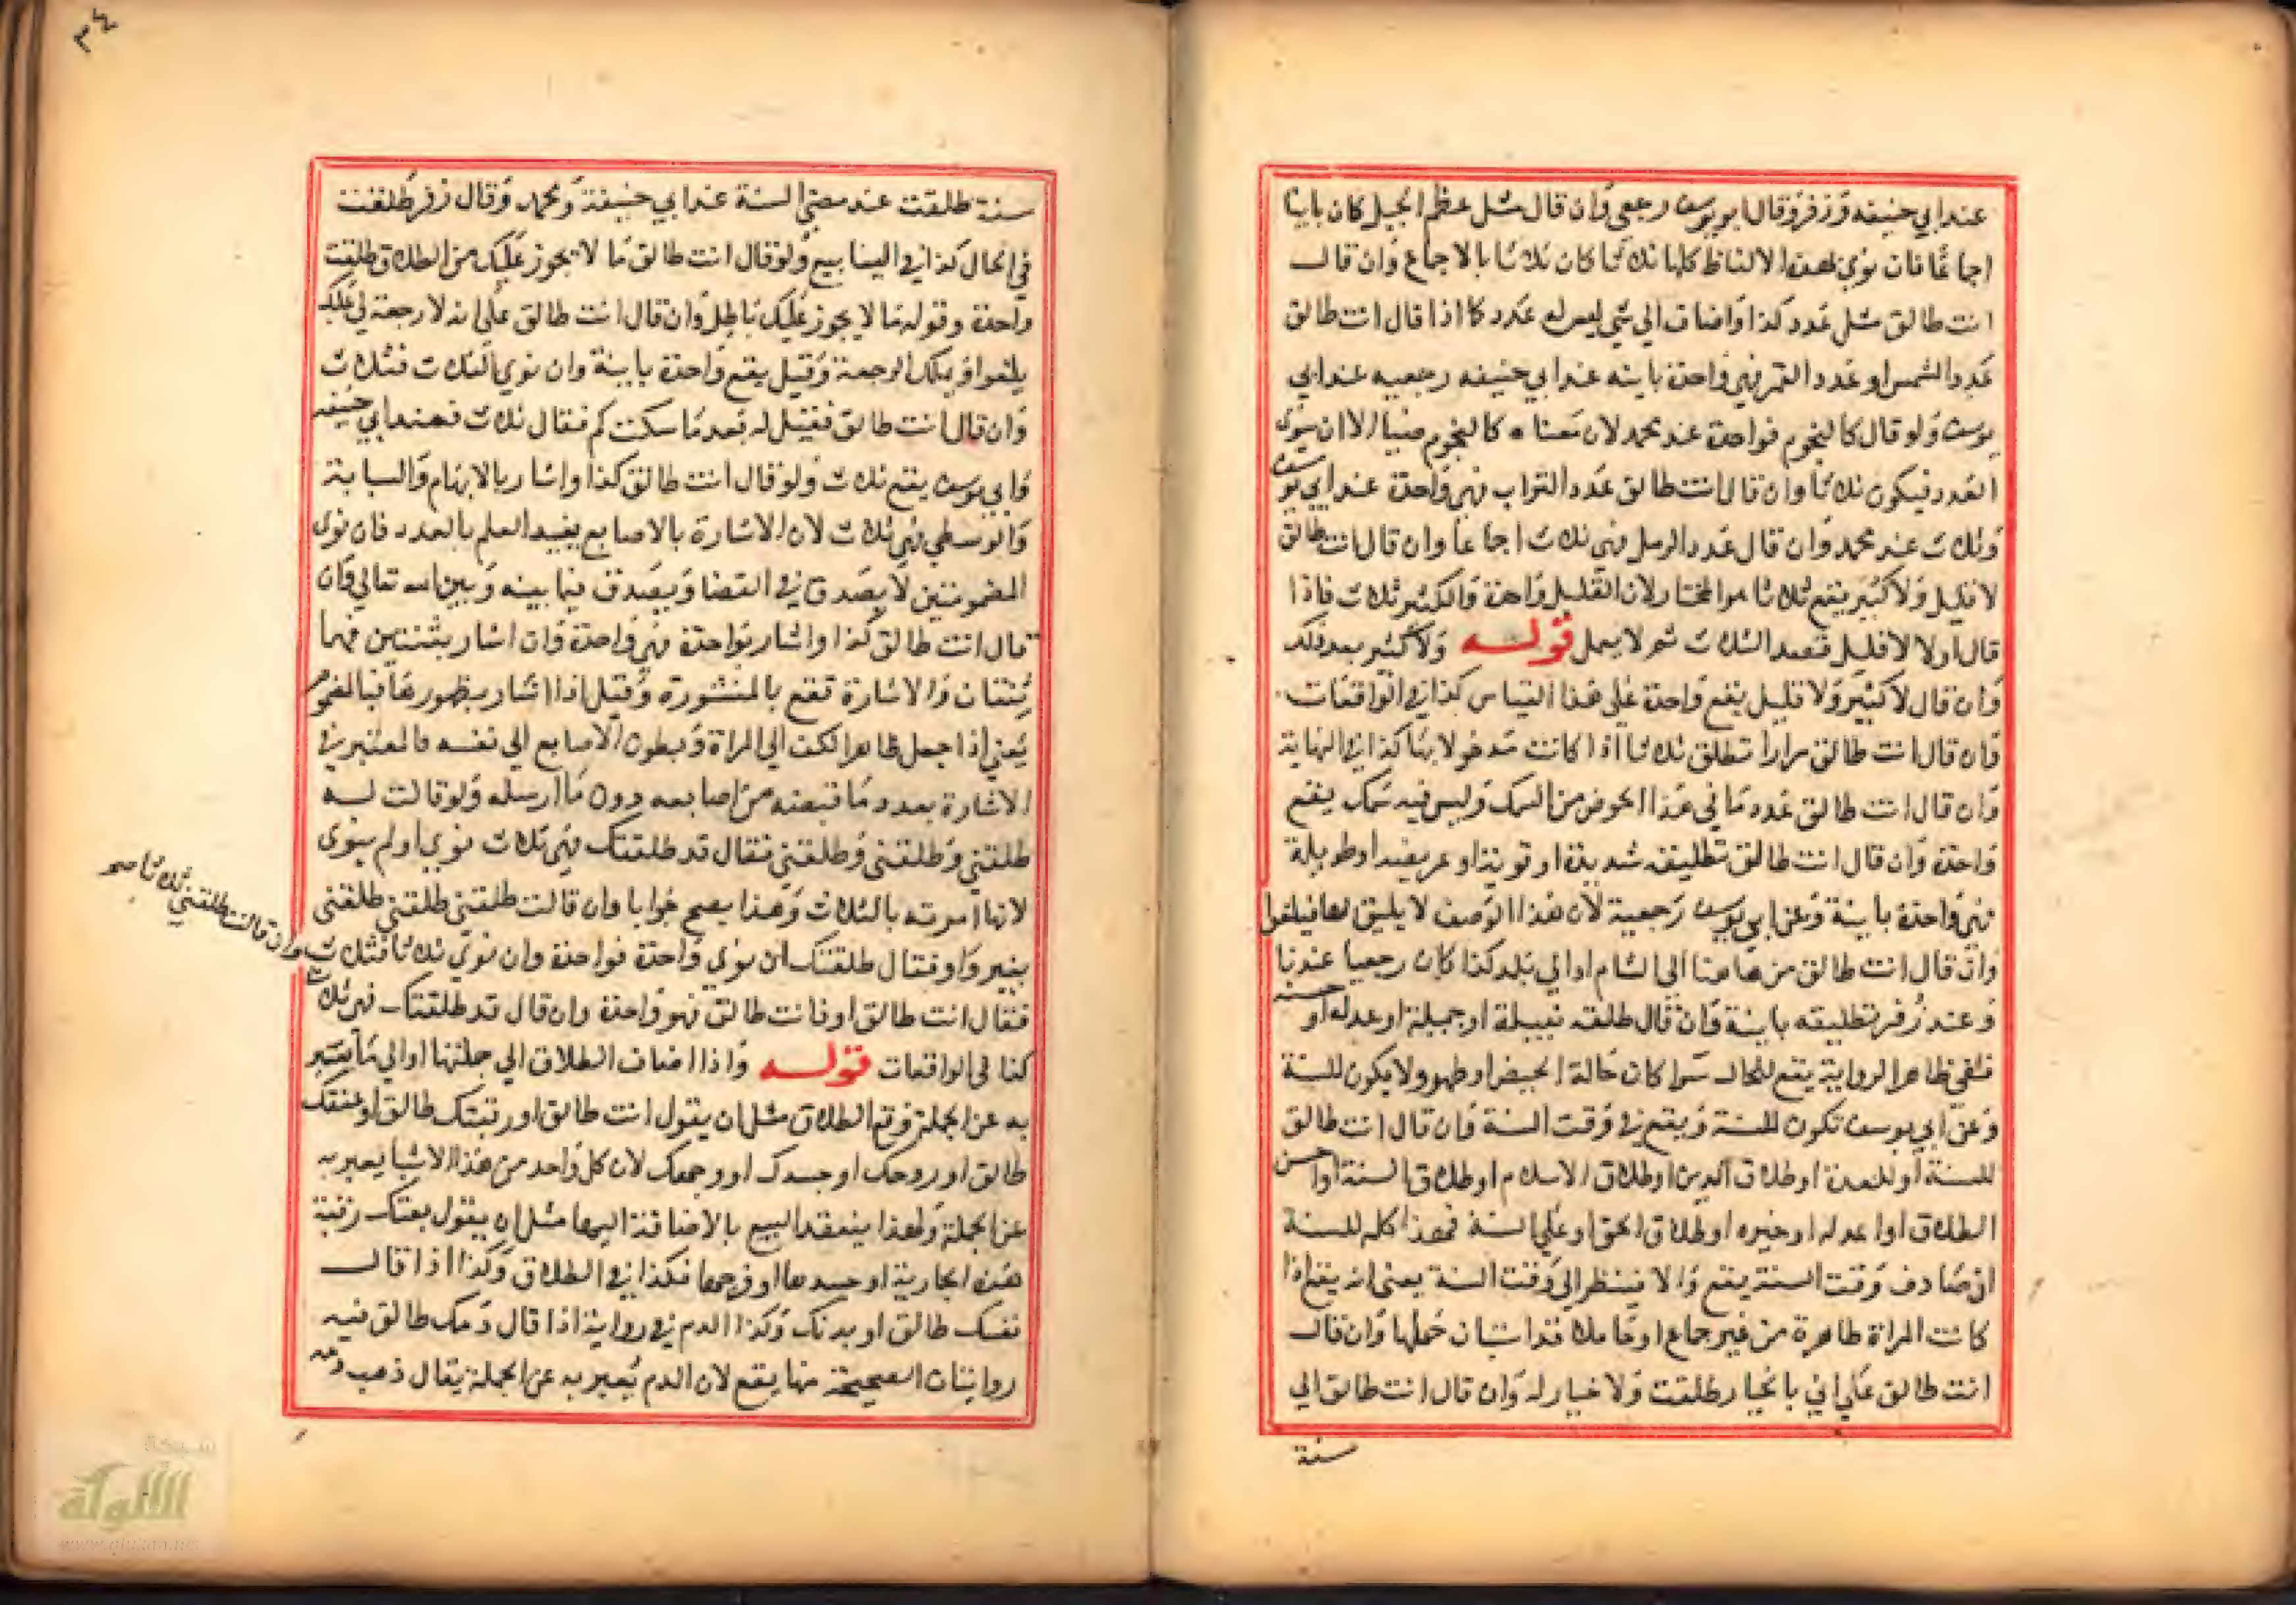 عند ابي حنيفه وزفر وقال ابو يوسف رجعي وان قال مثل عظم الجبل كان باينا
اجماعا فان نوي بهذه الالفاظ كلها ثلاثا كان ثلاثا بالاجماع وان قال
انت طالق مثل عدد كذا واضاف الي شي ليس له عدد كما اذا قال انت طالق
عدد الشمس او عدد القمر فهي واحدة باينه عند ابي حنيفه رجعيه عند ابي
يوسف ولو قال كالنجوم فواحدة عند محمد لان معناه كالنجوم ضيا الا ان ينوي
العدد فيكون ثلاثا وان قال انت طالق عدد التراب فهي واحدة عند ابي يوسف
وثلاث عند محمد وان قال عدد الرمل فهي ثلاث اجماعا وان قال انت طالق
لا قليل ولا كثير يقع ثلاثا هو المختار لان القليل واحدة والكثير ثلاث فاذا
قال اولا لا قليل قصد الثلاث ثم لا يعمل قوله ولا كثير بعد ذلك
وان قال لا كثير ولا قليل يقع واحدة علي هذا القياس كذا في الواقعات
وان قال انت طالق مرارا تطلق ثلاثا اذا كانت مدخولا بها كذا في النهاية
وان قال انت طالق عدد ما في هذا الحوض من السمك وليس فيه سمك يقع
واحدة وان قال انت طالق تطليقه شديدة او قوية او عريضة او طويلة
فهي واحدة باينة وعن ابي يوسف رجعية لان هذا الوصف لا يليق بها فيلغوا
وان قال انت طالق من هاهنا الي الشام او الي بلد كذا كان رجعيا عندنا
وعند زفر تطليقه باينة وان قال طلقه نبيلة او جميلة او عدله او حسنه
ففي ظاهر الرواية يقع للحال سوا كان حالة الحيض او طهر ولا يكون للسنة
وعن ابي يوسف تكون للسنة ويقع في وقت السنة وان قال انت طالق
للسنة او للعدة او طلاق الدين او طلاق الاسلام او طلاق السنة او احسن
الطلاق او اعدله او خيره او طلاق الحق او علي السنة فهذا كله للسنة
ان صادف وقت السنة يقع والا فينتظر الي وقت السنة يعني انه يقع اذا
كانت المراة طاهرة من غير جماع او حاملا قد استبان حملها وان قال
انت طالق علي اني بالخيار طلقت ولا خيار له وان قال انت طالق الي
سنة
٣٤
سنة طلقت عند مضي السنة عند ابي حنيفة ومحمد وقال زفر طلقت
في الحال كذا في الينابيع ولو قال انت طالق ما لا يجوز عليك من الطلاق طلقت
واحدة وقوله ما لا يجوز عليك باطل وان قال انت طالق علي انه لا رجعة لي عليك
يلغوا ويملك الرجعة وقيل يقع واحدة باينة وان نوي الثلاث فثلاث
وان قال انت طالق فقيل له بعد ما سكت كم فقال ثلاث فعند ابي حنيفه
وابي يوسف يقع ثلاث ولو قال انت طالق كذا واشار بالابهام والسبابة
والوسطي فهي ثلاث لان الاشارة بالاصابع يفيد العلم بالعدد فان نوي
المضمومتين لا يصدق في القضا ويصدق فيما بينه وبين الله تعالي وان
قال انت طالق كذا واشار بواحدة فهي واحدة وان اشار بثنتين فهما
ثنتان والاشارة تقع بالمنشورة وقيل اذا اشار بظهورها فبالمضموم
يعني اذا جعل ظاهر الكف الي المراة وبطون الاصابع الي نفسه فالمعتبر في
الاشارة بعدد ما قبضه من اصابعه دون ما ارسله ولو قالت له
طلقني وطلقني وطلقني فقال قد طلقتك فهي ثلاث نوي او لم ينوي
لانها امرته بالثلاث وهذا يصح جوابا وان قالت طلقني طلقني طلقني
بغير واو فقال طلقتك ان نوي واحدة فواحدة وان نوي ثلاثا فثلاث
وان قالت طلقني ثلاثا صح
فقال انت طالق او فانت طالق فهو واحدة وان قال قد طلقتك فهي ثلاث
كذا في الواقعات قوله واذا اضاف الطلاق الي جملتها او الي ما يعبر
به عن الجملة وقع الطلاق مثل ان يقول انت طالق او رقبتك طالق او عنقك
طالق او روحك او جسدك او وجهك لان كل واحد من هذا الاشيا يعبر به
عن الجملة ولهذا ينعقد البيع بالاضافة اليها مثل ان يقول بعتك رقبة
هذه الجارية او جسدها او فرجها فكذا في الطلاق وكذا اذا قال
نفسك طالق او بدنك وكذا الدم في رواية اذا قال دمك طالق فيه
روايتان الصحيحة منها يقع لان الدم يعبر به عن الجملة يقال ذهب دمه
شبكة
الألوكة
www.alukah.net